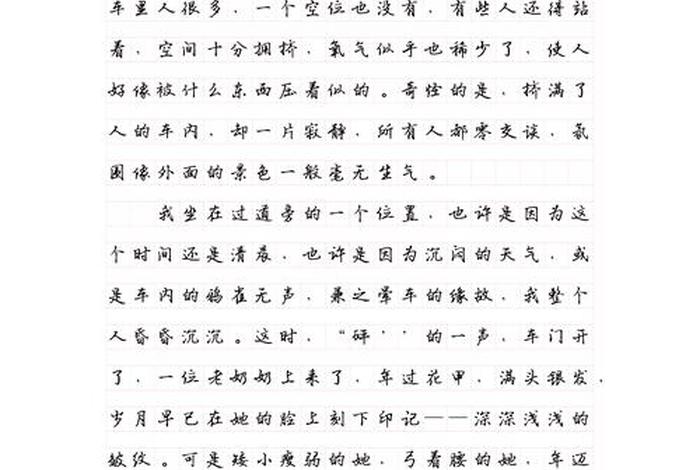 车里人很多，一个空位也没有，有些人还得站
着，空间十分拥挤，氧气似乎也稀少了，使人
好像被什么东西压着似的。奇怪的是，挤满了
人的车内，却一片寂静，所有人都零交谈，氛
围像外面的景色一般毫无生气。
我坐在过道旁的一个位置，也许是因为这
个时间还是清晨，也许是因为沉闷的天气，或
是车内的鸦雀无声，兼之晕车的缘故，我整个
人昏昏沉沉。这时，“砰””的一声，车门开
了，一位老奶奶上来了，年过花甲，满头银发，
岁月早已在她的脸上刻下印记——深深浅浅的
皱纹。可是矮小瘦弱的她，弓着腰的她，年迈